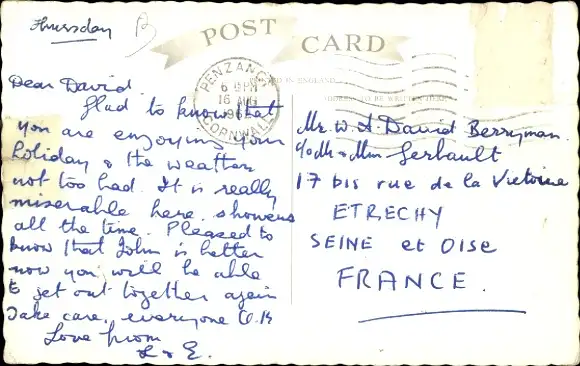 Thursday
POST CARD
PENZANCE
6 PM
16 AUG
196
CORNWALL
IN ENGLAND
Dear David.
Glad to know that
you are enjoying your
holiday & the weather
not too bad. It is really
miserable here. showers
all the time. Pleased to
know that John is better
now you will be able
to get out together again
Take care, everyone O.K
Love from
& E.
Mr. W. A. David Berryman.
c/o M & Mm Gerbault
17 bis rue de la Victoire
ETRECHY
SEINE et OISE
FRANCE.